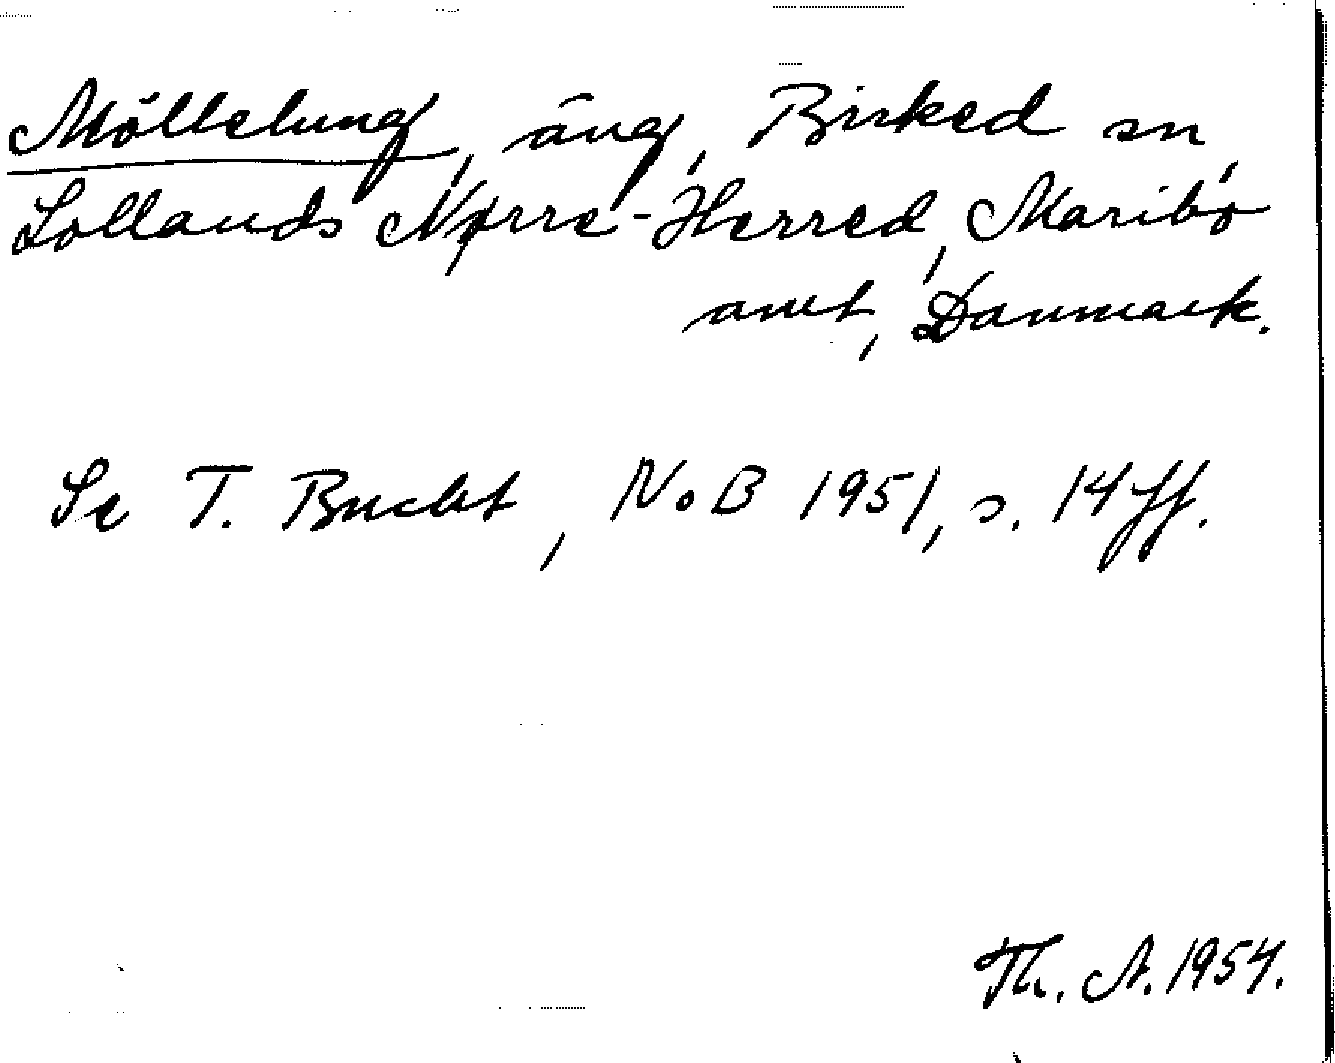 Möllelung, äng, Birked sn,
Lollands Nørre-Herred, Maribo
amt, Danmark.
Se T. Bucht, NoB 1951, s. 14 ff.
Th. A. 1954.